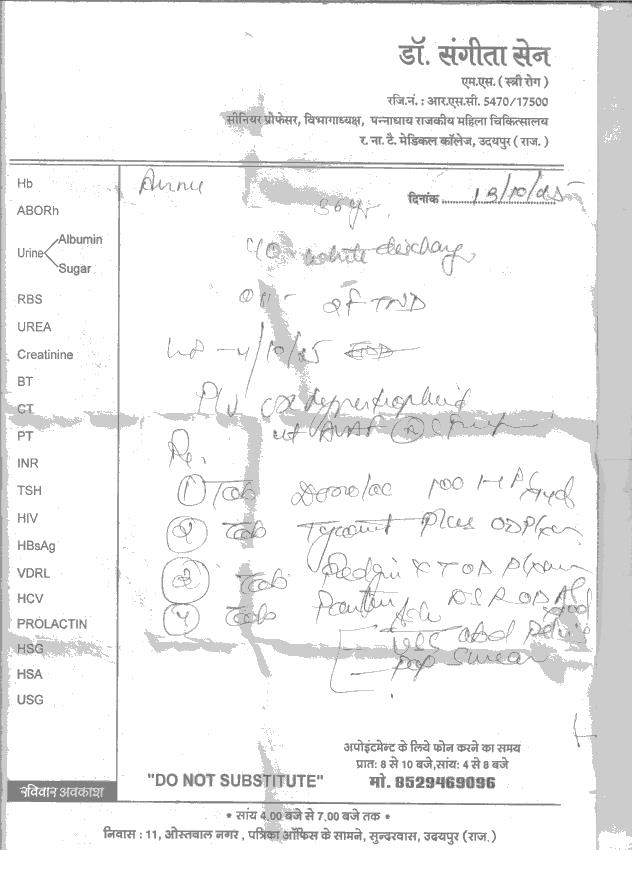 डॉ. संगीता सेन
एम.एस. ( स्त्री रोग )
रजि.नं. : आर.एस.सी. 5470/17500
सीनियर प्रोफेसर, विभागाध्यक्ष, पन्नाधाय राजकीय महिला चिकित्सालय
र. ना. टै. मेडिकल कॉलेज, उदयपुर ( राज. )
दिनांक 13/10/25
36 yr.
Hb
ABORh
white discharge
Urine Albumin
Sugar
RBS
UREA
Creatinine
4/10/25
BT
CT
P/V CX hypertrophied
PT
INR
Rx.
TSH
① Tab 100
HIV
② Tab Plus OD
HBsAg
VDRL
Tab XT OD
HCV
④ Tab DSR OD
PROLACTIN
USG abd pelvis
HSG
pap smear
HSA
USG
अपोइंटमेन्ट के लिये फोन करने का समय
प्रात: 8 से 10 बजे,सांय: 4 से 8 बजे
मो. 8529469096
"DO NOT SUBSTITUTE"
रविवार अवकाश
• सांय 4.00 बजे से 7.00 बजे तक •
निवास : 11, ओस्तवाल नगर , पत्रिका ऑफिस के सामने, सुन्दरवास, उदयपुर (राज.)